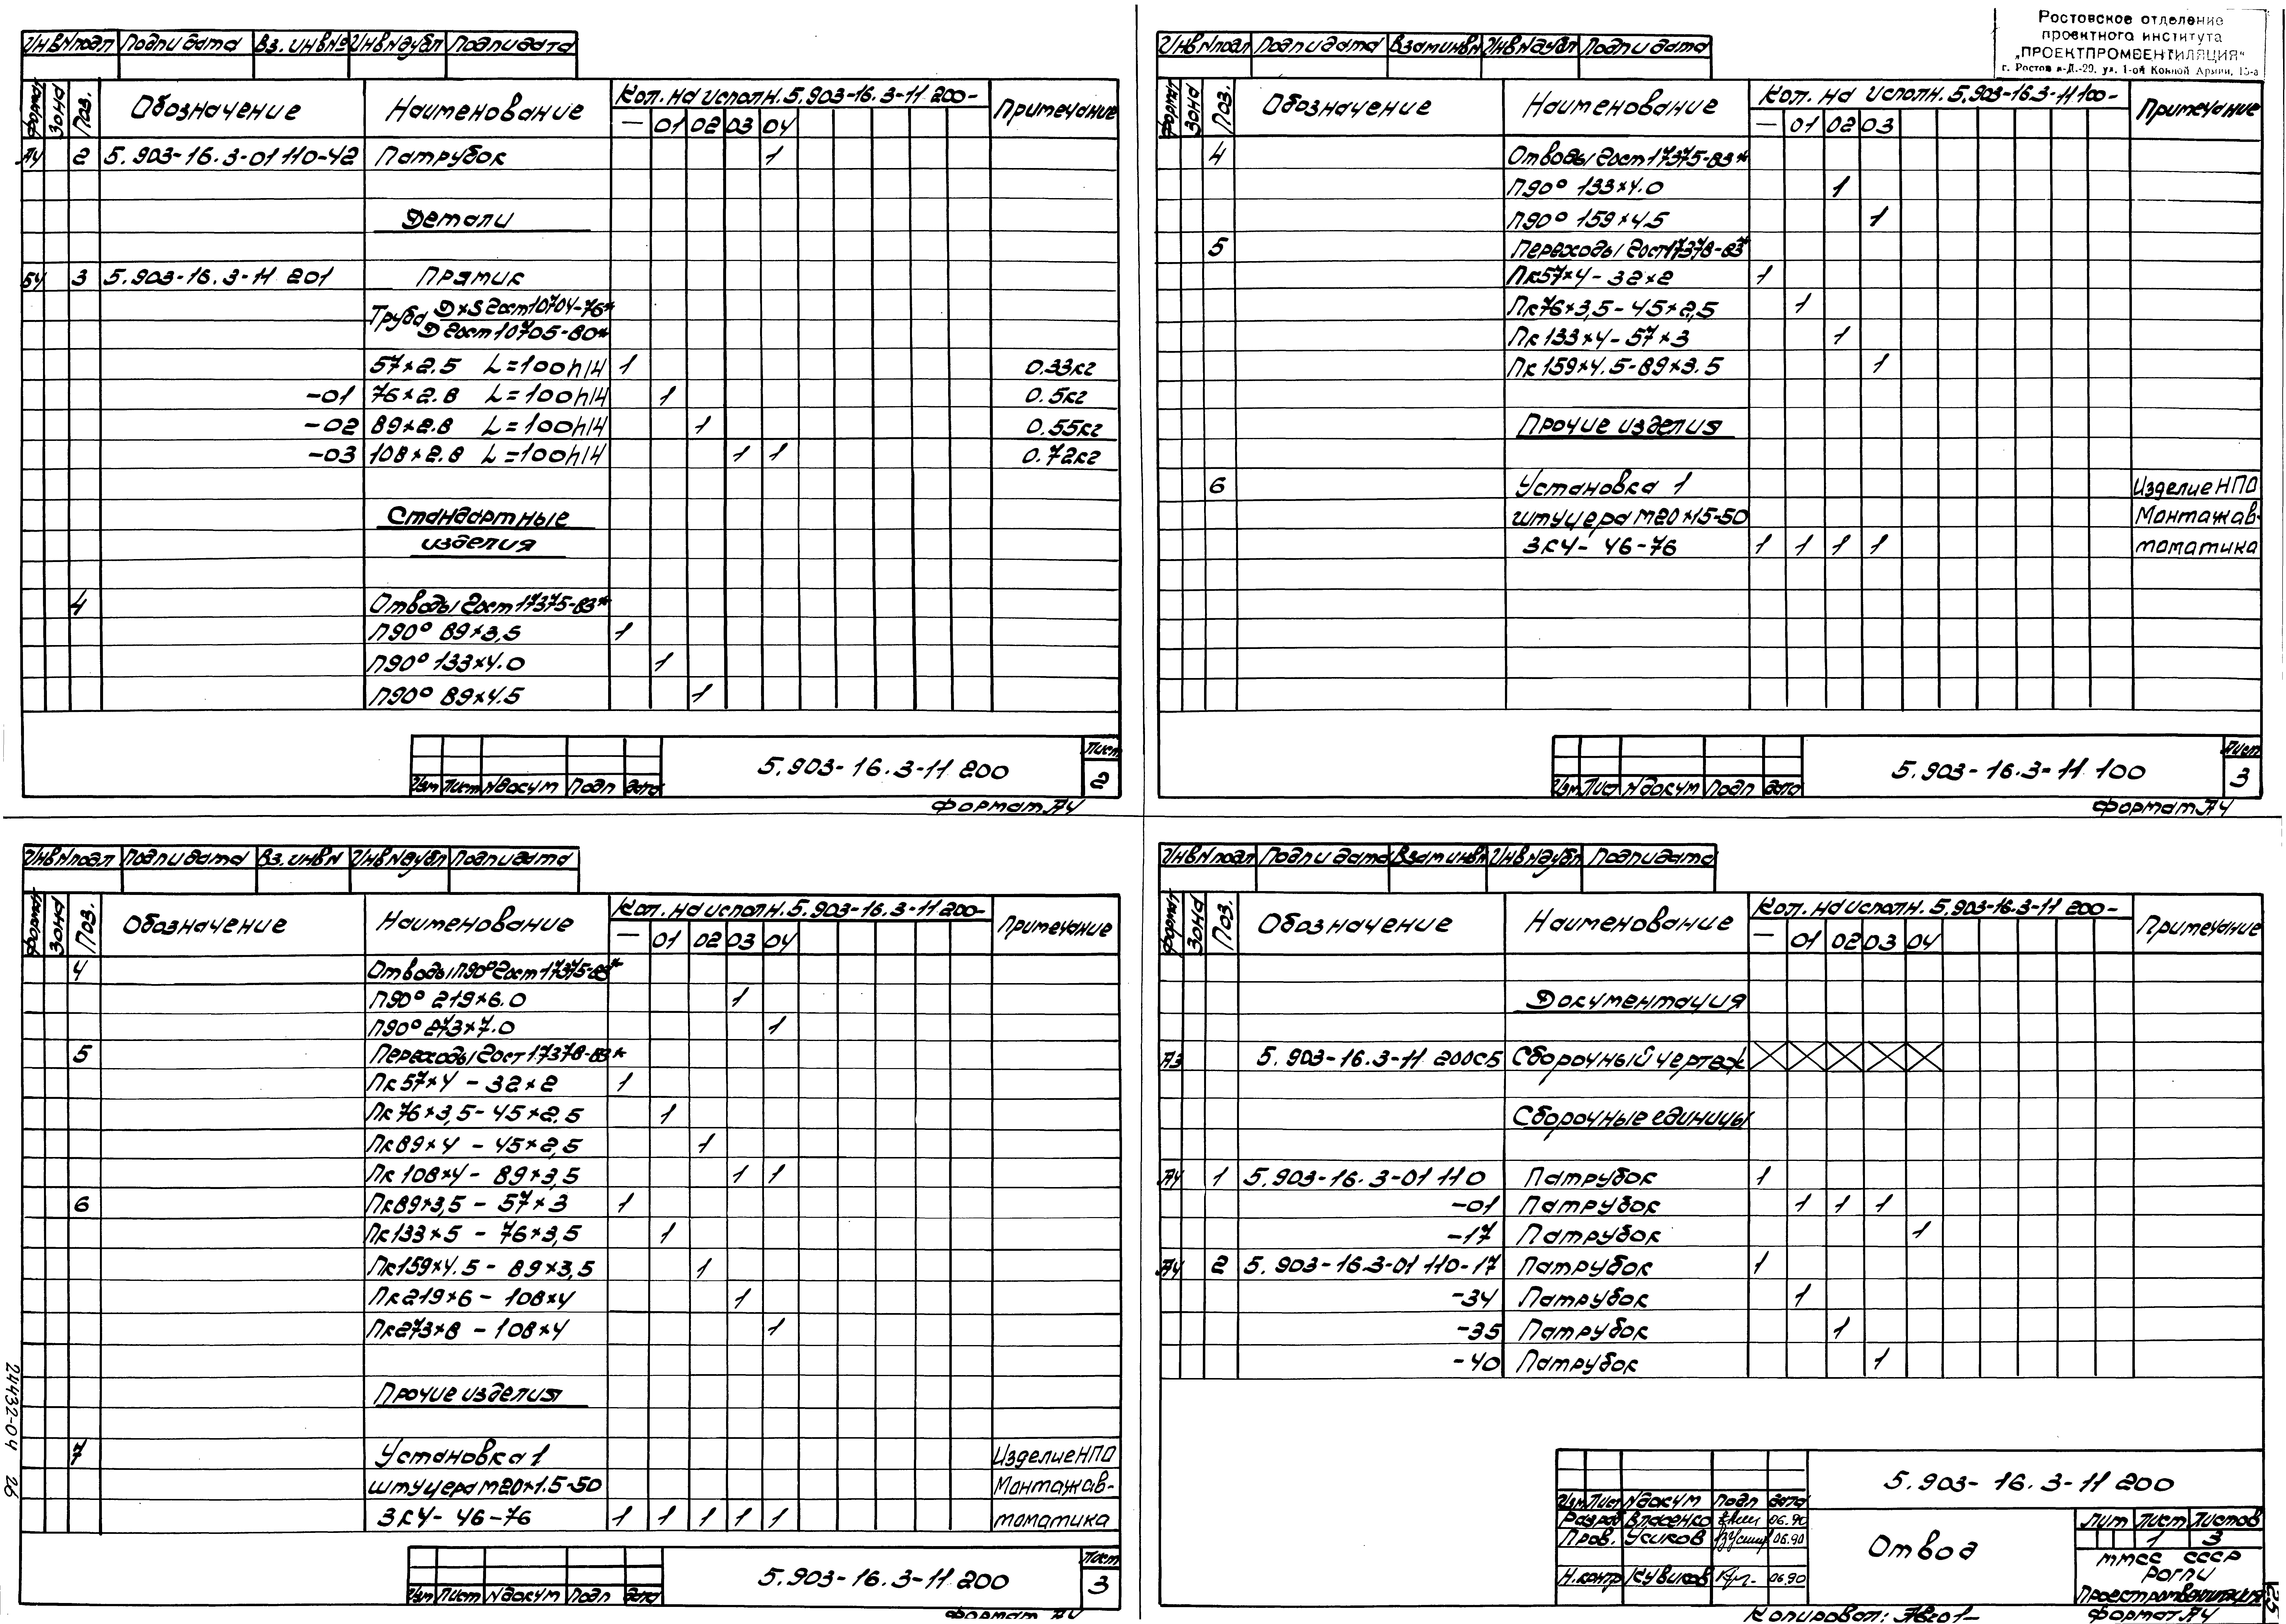 Инв№подл Подп и дата Вз. инв№ Инв№дубл Подп и дата
Формат Зона Поз. Обозначение Наименование Кол. на исполн. 5.903-16.3-11 200- Примечание
— 01 02 03 04
А4 2 5.903-16.3-01 110-42 Патрубок 1
Детали
БЧ 3 5.903-16.3-11 201 Прямик
Труба Д×S Гост 10704-76*
Д Гост 10705-80*
57×2.5 L=100h14 1 0.33кг
-01 76×2.8 L=100h14 1 0.5кг
-02 89×2.8 L=100h14 1 0.55кг
-03 108×2.8 L=100h14 1 1 0.72кг
Стандартные
изделия
4 Отводы Гост 17375-83*
П90° 89×3,5 1
П90° 133×4.0 1
П90° 89×4.5 1
Изм Лист №докум Подп Дата
5.903-16.3-11 200
Лист
2
Формат А4
Ростовское отделение
проектного института
„ПРОЕКТПРОМВЕНТИЛЯЦИЯ"
г. Ростов н-Д.-29, ул. 1-ой Конной Армии, 15-а
Инв№подл Подп и дата Взам инв№ Инв№дубл Подп и дата
Формат Зона Поз. Обозначение Наименование Кол. на исполн. 5.903-16.3-11 100- Примечание
— 01 02 03
4 Отводы Гост 17375-83*
П90° 133×4.0 1
П90° 159×4.5 1
5 Переходы Гост 17378-83*
Пк57×4-32×2 1
Пк76×3,5-45×2,5 1
Пк133×4-57×3 1
Пк159×4.5-89×3.5 1
Прочие изделия
6 Установка 1 Изделие НПО
штуцера М20×15-50 Монтажав-
ЗК4-46-76 1 1 1 1 томатика
Изм Лист №докум Подп Дата
5.903-16.3-11 100
Лист
3
Формат А4
Инв№подл Подп и дата Вз. инв№ Инв№дубл Подп и дата
Формат Зона Поз. Обозначение Наименование Кол. на исполн. 5.903-16.3-11 200- Примечание
— 01 02 03 04
4 Отводы П90° Гост 17375-83*
П90° 219×6.0 1
П90° 273×7.0 1
5 Переходы Гост 17378-83*
Пк57×4 - 32×2 1
Пк76×3,5-45×2,5 1
Пк89×4 - 45×2,5 1
Пк108×4 - 89×3,5 1 1
6 Пк89×3,5 - 57×3 1
Пк133×5 - 76×3,5 1
Пк159×4.5 - 89×3,5 1
Пк219×6 - 108×4 1
Пк273×8 - 108×4 1
Прочие изделия
7 Установка 1 Изделие НПО
штуцера М20×1.5-50 Монтажав-
ЗК4-46-76 1 1 1 1 1 томатика
Изм Лист №докум Подп Дата
5.903-16.3-11 200
Лист
3
Формат А4
24432-04 26
Инв№подл Подп и дата Взам инв№ Инв№дубл Подп и дата
Формат Зона Поз. Обозначение Наименование Кол. на исполн. 5.903-16.3-11 200- Примечание
— 01 02 03 04
Документация
А3 5.903-16.3-11 200СБ Сборочный чертеж
Сборочные единицы
А4 1 5.903-16.3-01 110 Патрубок 1
-01 Патрубок 1 1 1
-17 Патрубок 1
А4 2 5.903-16.3-01 110-17 Патрубок 1
-34 Патрубок 1
-35 Патрубок 1
-40 Патрубок 1
5.903-16.3-11 200
Изм Лист №докум Подп Дата
Разраб Власенко 06.90
Пров. Усиков 06.90
Н.контр Кувиков 06.90
Отвод
Лит Лист Листов
1 3
ММСС СССР
РОГПИ
Проектпромвентиляция
Копировал:
Формат А4
25